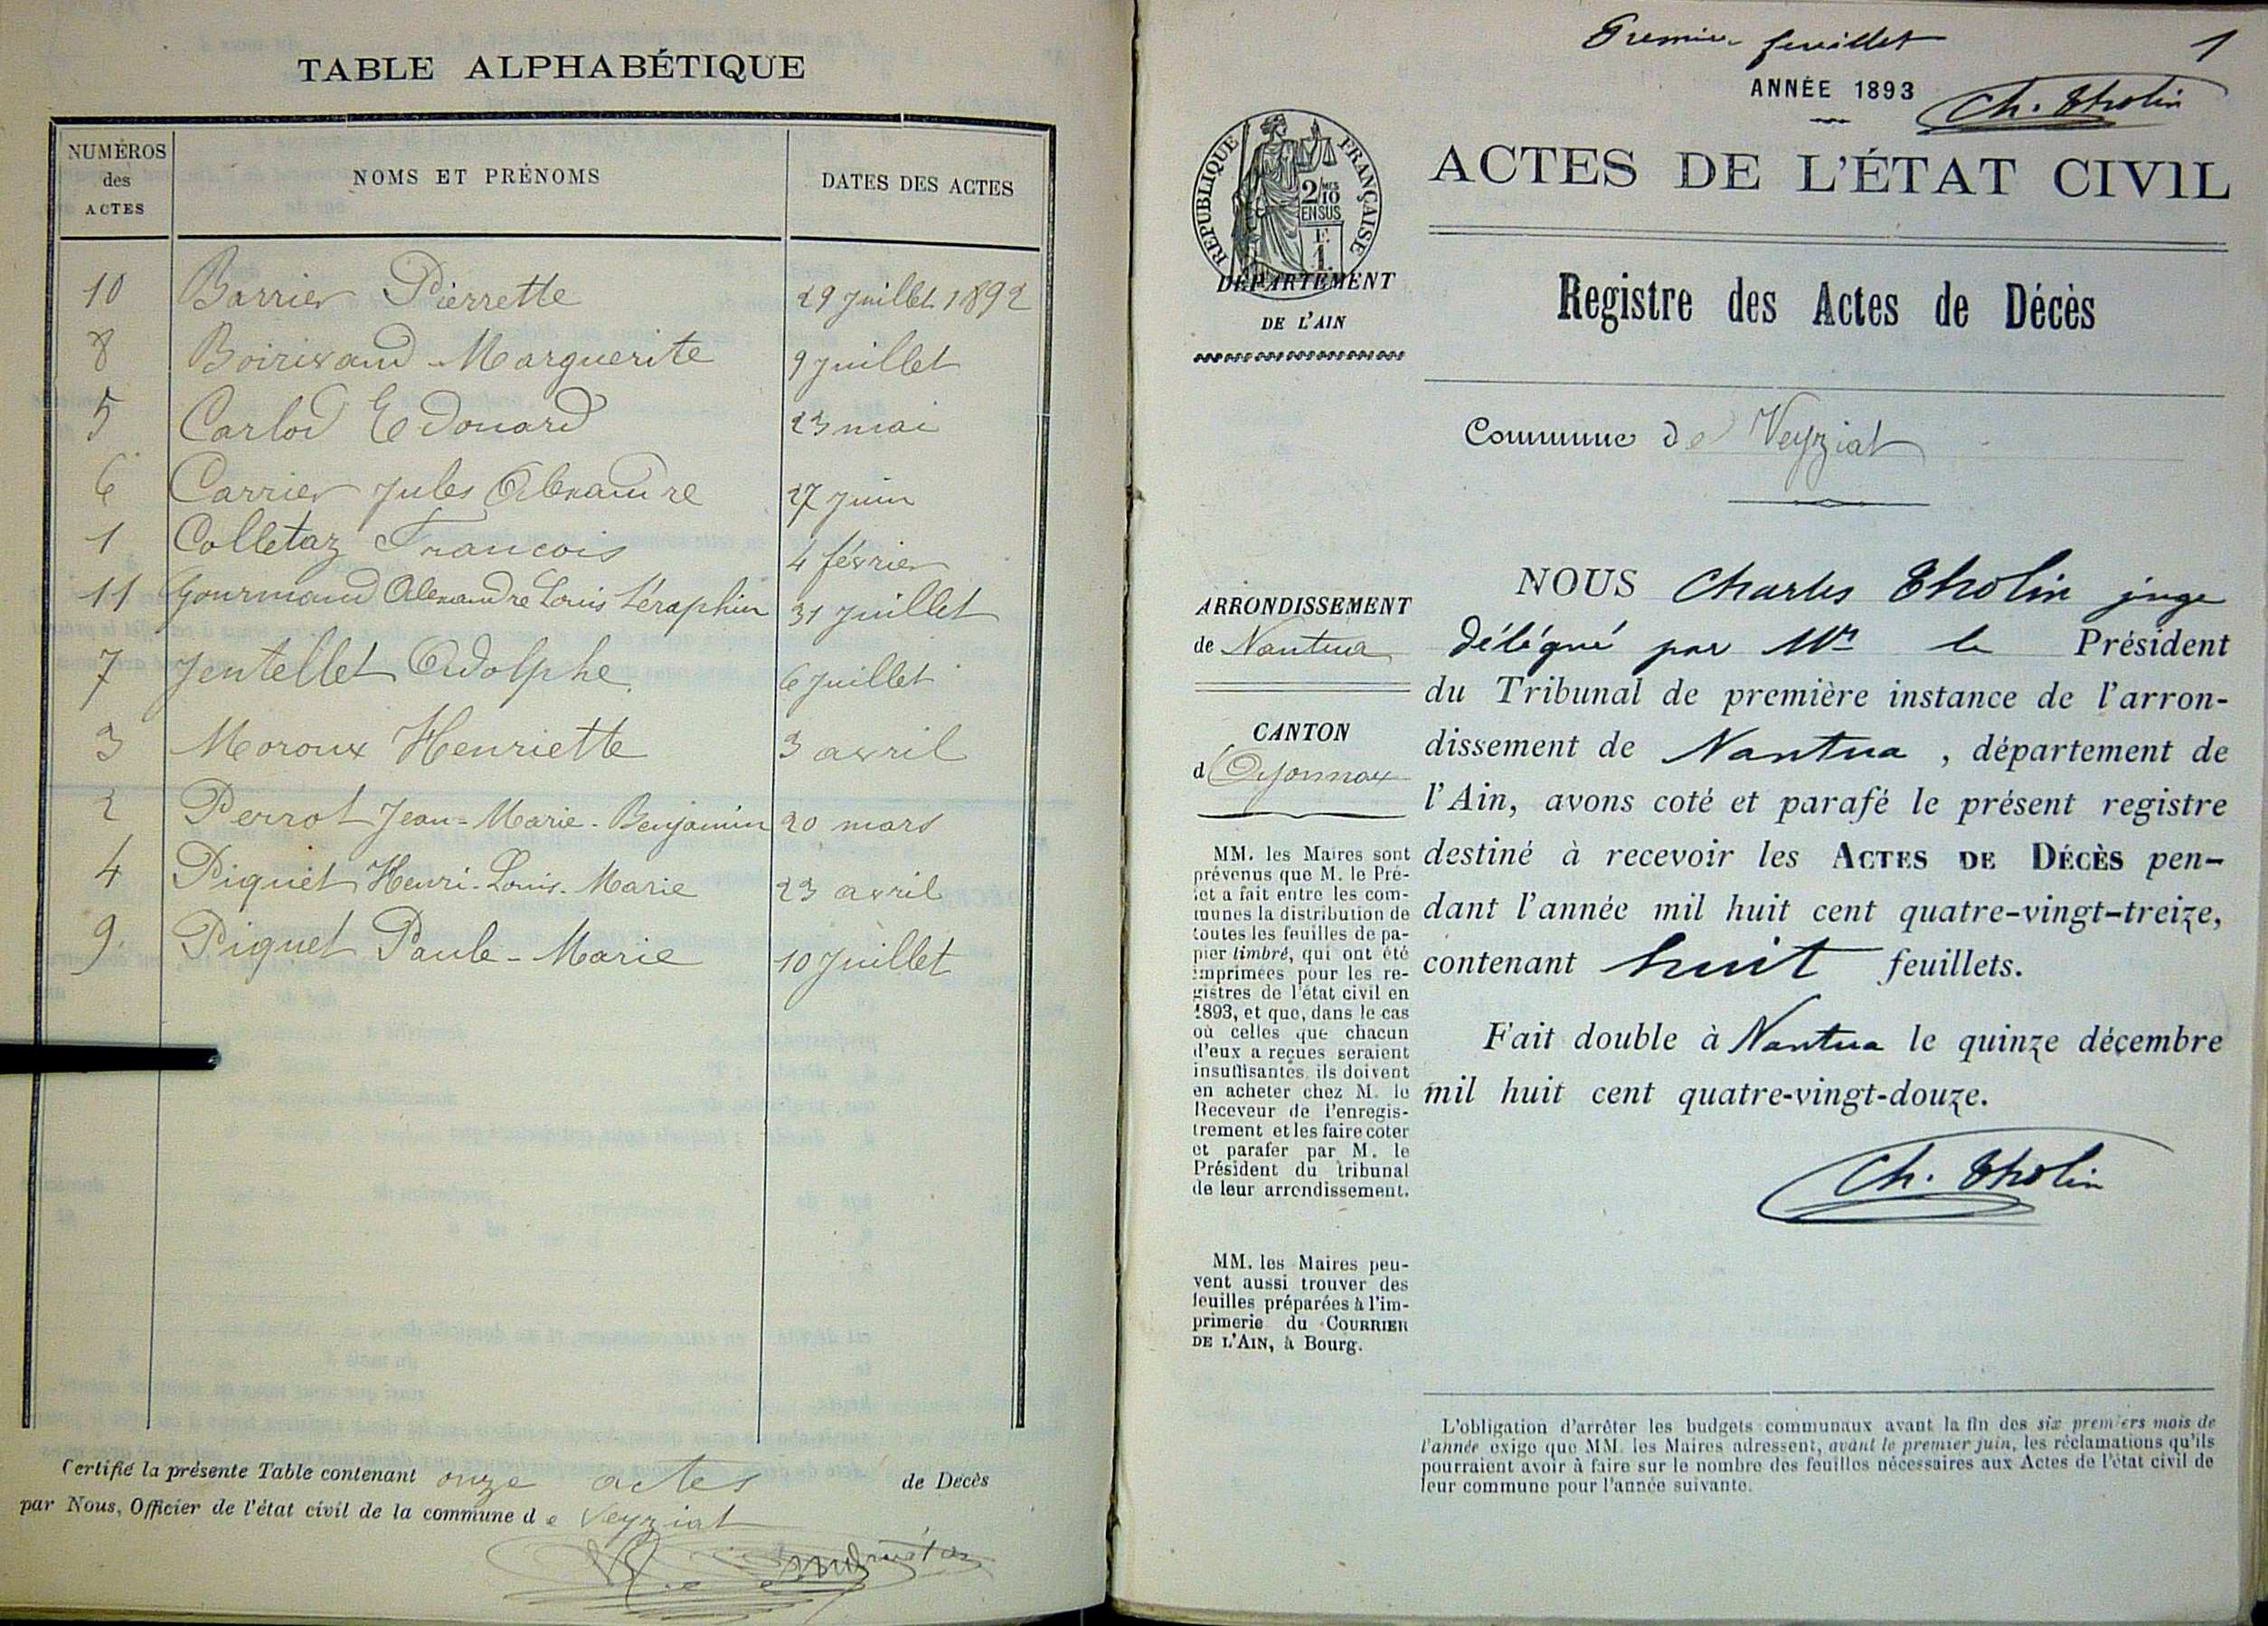 TABLE ALPHABÉTIQUE
NUMÉROS des ACTES
NOMS ET PRÉNOMS
DATES DES ACTES
10 Barrier Pierrette 29 juillet 1892
8 Boirivand Marguerite 9 juillet
5 Carlod Edouard 23 mai
6 Carrier Jules Alexandre 27 juin
1 Colletaz Francois 4 février
11 Gourmand Alexandre Louis Séraphin 31 juillet
7 Jentellet Adolphe 6 juillet
3 Moroux Henriette 3 avril
2 Perrot Jean-Marie-Benjamin 20 mars
4 Piquet Henri-Louis-Marie 23 avril
9 Piquet Paule-Marie 10 juillet
Certifié la présente Table contenant onze actes de Décès
par Nous, Officier de l'état civil de la commune de Veyziat
Premier feuillet 1
ANNÉE 1893
Ch. Tholin
RÉPUBLIQUE FRANÇAISE
2/10 MES
EN SUS
F.
1.
ACTES DE L'ÉTAT CIVIL
DÉPARTEMENT
DE L'AIN
Registre des Actes de Décès
Commune de Veyziat
ARRONDISSEMENT
de Nantua
CANTON
d'Oyonnax
MM. les Maires sont
prévenus que M. le Pré-
fet a fait entre les com-
munes la distribution de
toutes les feuilles de pa-
pier timbré, qui ont été
imprimées pour les re-
gistres de l'état civil en
1893, et que, dans le cas
où celles que chacun
d'eux a reçues seraient
insuffisantes, ils doivent
en acheter chez M. le
Receveur de l'enregis-
trement et les faire coter
et parafer par M. le
Président du tribunal
de leur arrondissement.
MM. les Maires peu-
vent aussi trouver des
feuilles préparées à l'im-
primerie du COURRIER
DE L'AIN, à Bourg.
NOUS Charles Tholin juge
délégué par Mr le Président
du Tribunal de première instance de l'arron-
dissement de Nantua, département de
l'Ain, avons coté et parafé le présent registre
destiné à recevoir les ACTES DE DÉCÈS pen-
dant l'année mil huit cent quatre-vingt-treize,
contenant huit feuillets.
Fait double à Nantua le quinze décembre
mil huit cent quatre-vingt-douze.
Ch. Tholin
L'obligation d'arrêter les budgets communaux avant la fin des six premiers mois de
l'année exige que MM. les Maires adressent, avant le premier juin, les réclamations qu'ils
pourraient avoir à faire sur le nombre des feuilles nécessaires aux Actes de l'état civil de
leur commune pour l'année suivante.